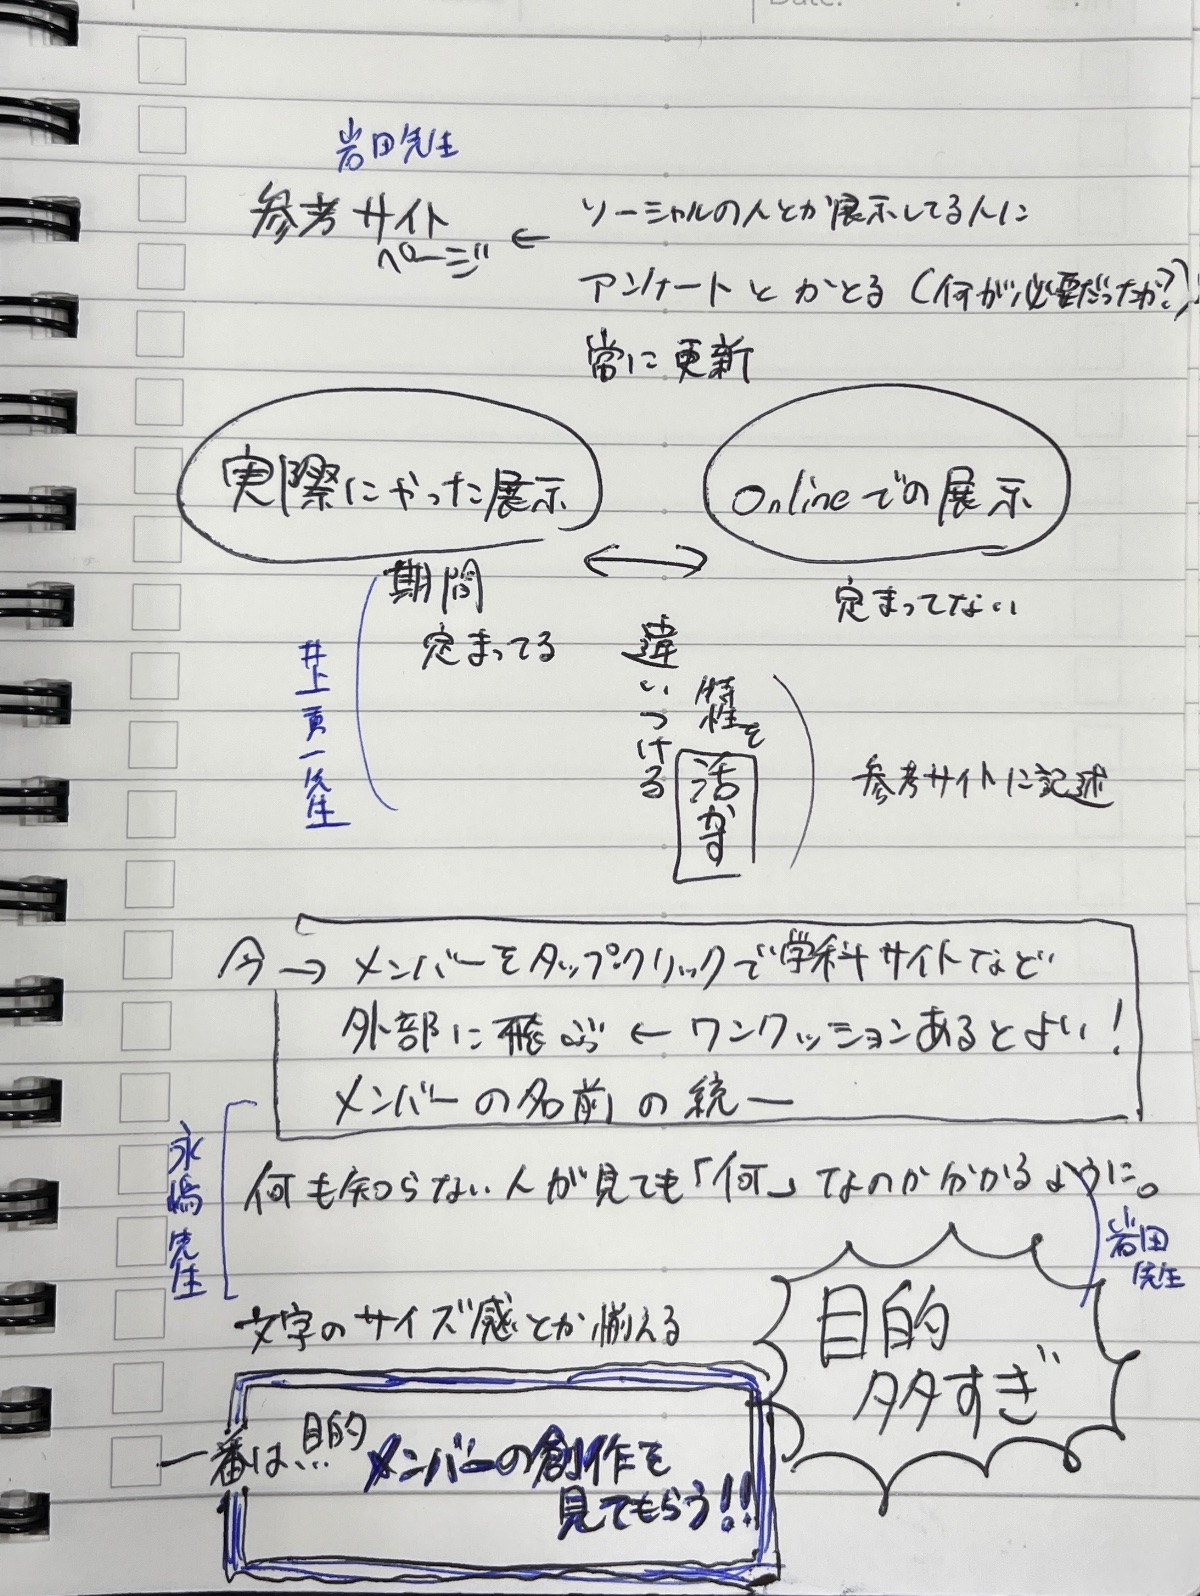 Date:
岩田先生
参考サイト
ページ
← ソーシャルの人とか展示してる人に
アンケートとかとる(何が必要だったか?)
常に更新
実際にやった展示
Onlineでの展示
期間
定まってる
定まってない
井上貢一先生
違いつける
特性を
活かす
参考サイトに記述
今→メンバーをタップクリックで学科サイトなど
外部に飛ぶ←ワンクッションあるとよい!
メンバーの名前の統一
永嶋先生
何も知らない人が見ても「何」なのか分かるように。
岩田
先生
文字のサイズ感とか揃える
目的
多すぎ
一番は…目的
メンバーの創作を
見てもらう!!